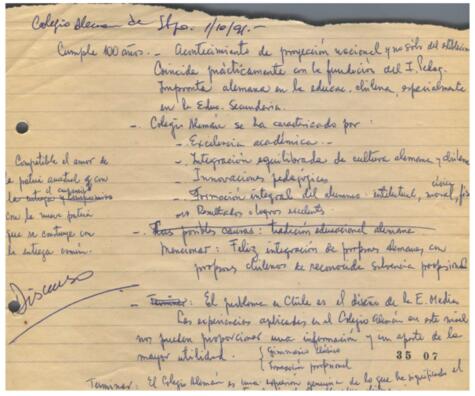 Colegio Aleman de Stgo. 1/10/91.-
Cumple 100 años. - Acontecimiento de proyección nacional y no solo del
Coincide prácticamente con la fundación del I. Pedag.
Impronta alemana en la educac. chilena, especialmente
en la Educ. Secundaria.
-. Colegio Alemán se ha caracterizado por:
-. Excelencia académica.-
-. Integración equilibrada de cultura alemana y chilena
-. Innovaciones pedagógicas
cívica,
-. Formación integral del alumno: intelectual, moral,
Resultados o logros excelentes
Compatible el amor de
la patria ancestral q con
con la nueva patria
que se contruye con
la entrega común.
-. Tras posibles causas: tradición educacional alemana
Mencionar: Feliz integración de profesores alemanes con
profesores chilenos de reconocida solvencia profesional
Discurso
-. Terminar: El problema en Chile es el diseño de la E. Media
Las experiencias aplicadas en el Colegio Alemán en este nivel
nos pueden proporcionar una información y un aporte de la
mayor utilidad. { Gimnasio Clásico
{ Formación profesional
35 07
Terminar: El Colegio Alemán es una expresión genuina de lo que ha significado el